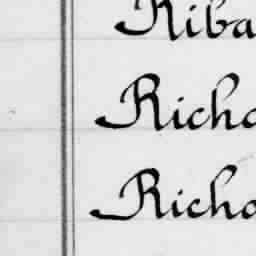 Riba
Richa
Richa